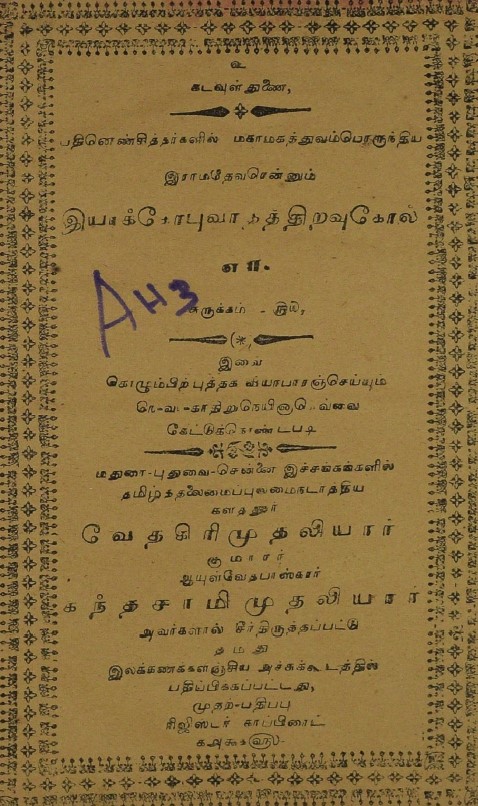 உ
கடவுள்துணை,
பதினெண்சித்தர்களில் மகாமகத்துவம்பொருந்திய
இராமதேவரென்னும்
இயாக்கோபுவாதத்திறவுகோல்
AH3
சுருக்கம் -
இவை
கொழும்பிற்புத்தக வியாபாரஞ்செய்யும்
கேட்டுக்கொண்டபடி
மதுரை-புதுவை-சென்னை இச்சங்கங்களில்
தமிழ்த்தலைமைப்புலமைநடாத்திய
களத்தூர்
வேதகிரிமுதலியார்
குமாரர்
ஆயுள்வேதபாஸ்கரர்
கந்தசாமிமுதலியார்
அவர்களால் சீர்திருத்தப்பட்டு
தமது
இலக்கணக்களஞ்சிய அச்சுக்கூடத்தில்
பதிப்பிக்கப்பட்டது,
முதற்-பதிப்பு
ரிஜிஸ்டர் காப்பிரைட்